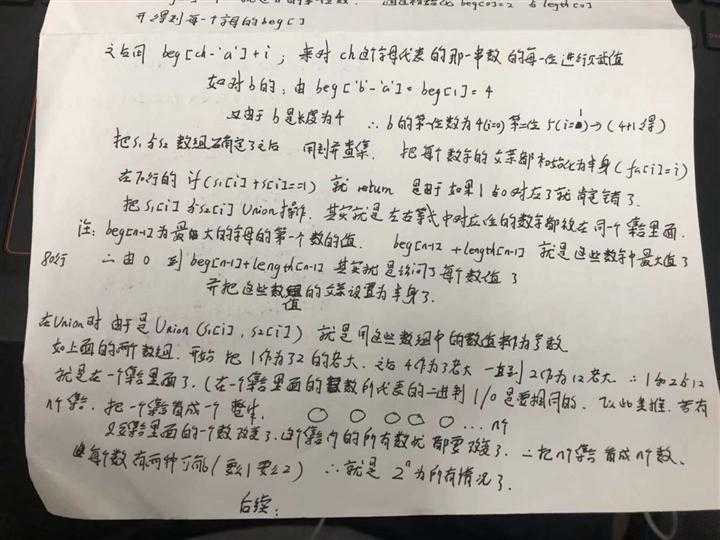 并得到每一个字母的beg[]
之后用 beg[ch-'a']+i; 来对ch这个字母代表的那一串数的每一位进行赋值
如对b的:由 beg['b'-'a']=beg[1]=4
又由于b是长度为4 ∴ b的第一位数为4(i=0)第二位5(i=1)→(4+1得)
把s1与s2数组都确定了之后 用到并查集. 把每个数字的父亲都初始化为本身(fa[i]=i)
在70行的 if(s1[i]+s[i]==1) 就 return 是由于如果1与0对应了就肯定错了.
把s1[i]与s2[i] Union操作. 其实就是左右等式中对应位的数字都放在同一个集合里面.
注:beg[n+1]为最大的字母的第一个数的值. beg[n-1]+length[n-1] 就是这些数字中最大值了
80行 ∴由0到beg[n-1]+length[n-1] 其实就是访问了每个数值了
并把这些数值的父亲设置为本身了.
在Union时 由于是Union(s1[i],s2[i]) 就是用这些数组中的数值来作为参数
如上面的两个数组. 开始把1作为12的老大. 之后4作为3老大 一直到2作为12老大 ∴1和2与12
就是在一个集合里面了.(在一个集合里面的数所代表的二进制1/0是要相同的. 以此类推. 若有
n个集合. 把一个集合看成一个整体. ○ ○ ○○ ○ ... n个
只要集合里面的一个数改变了.这个集合内的所有数就都要改变了. ∴把n个集合看成n个数.
每个数有两种可能(要么1要么2) ∴就是 2ⁿ为所有情况了.
后续: